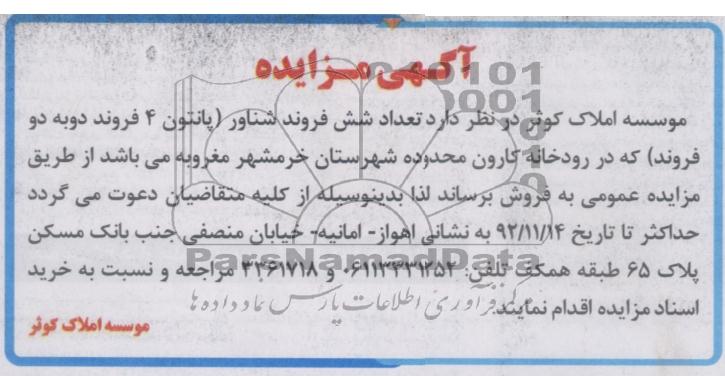 آگهی مزایده
موسسه املاک کوثر در نظر دارد تعداد شش فروند شناور (پانتون ۴ فروند دوبه دو
فروند) که در رودخانه کارون محدوده شهرستان خرمشهر مغروبه می باشد از طریق
مزایده عمومی به فروش برساند لذا بدینوسیله از کلیه متقاضیان دعوت می گردد
حداکثر تا تاریخ ۹۲/۱۱/۱۴ به نشانی اهواز- امانیه- خیابان منصفی جنب بانک مسکن
پلاک ۶۵ طبقه همکف تلفن: ۰۶۱۱۳۳۳۱۲۵۲ و ۳۳۶۱۷۱۸ مراجعه و نسبت به خرید
اسناد مزایده اقدام نمایند.
موسسه املاک کوثر
ParsNamadData
فرآوری اطلاعات پارس نماد داده ها